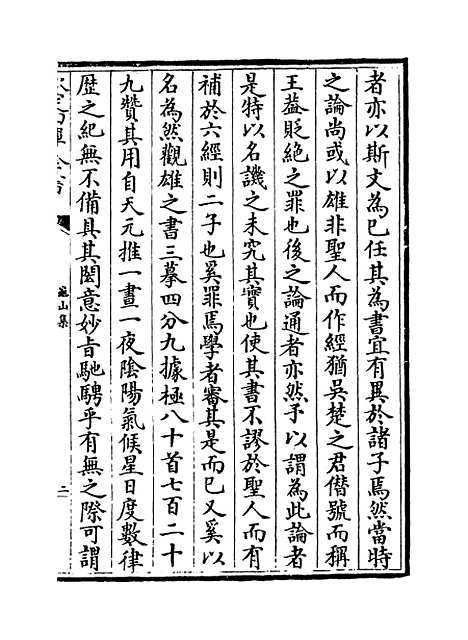 者亦以斯文為已任其為書宜有異於諸子焉然當時
之論尚或以雄非聖人而作經猶吳楚之君僭號而稱
王葢貶絶之罪也後之論通者亦然予以謂為此論者
是特以名譏之未究其實也使其書不謬於聖人而有
補於六經則二子也奚罪焉學者審其是而已又奚以
名為然觀雄之書三摹四分九據極八十首七百二十
九贊其用自天元推一晝一夜陰陽氣候星日度數律
歴之紀無不備具其閎意妙旨馳騁乎有無之際可謂
龜山集
二